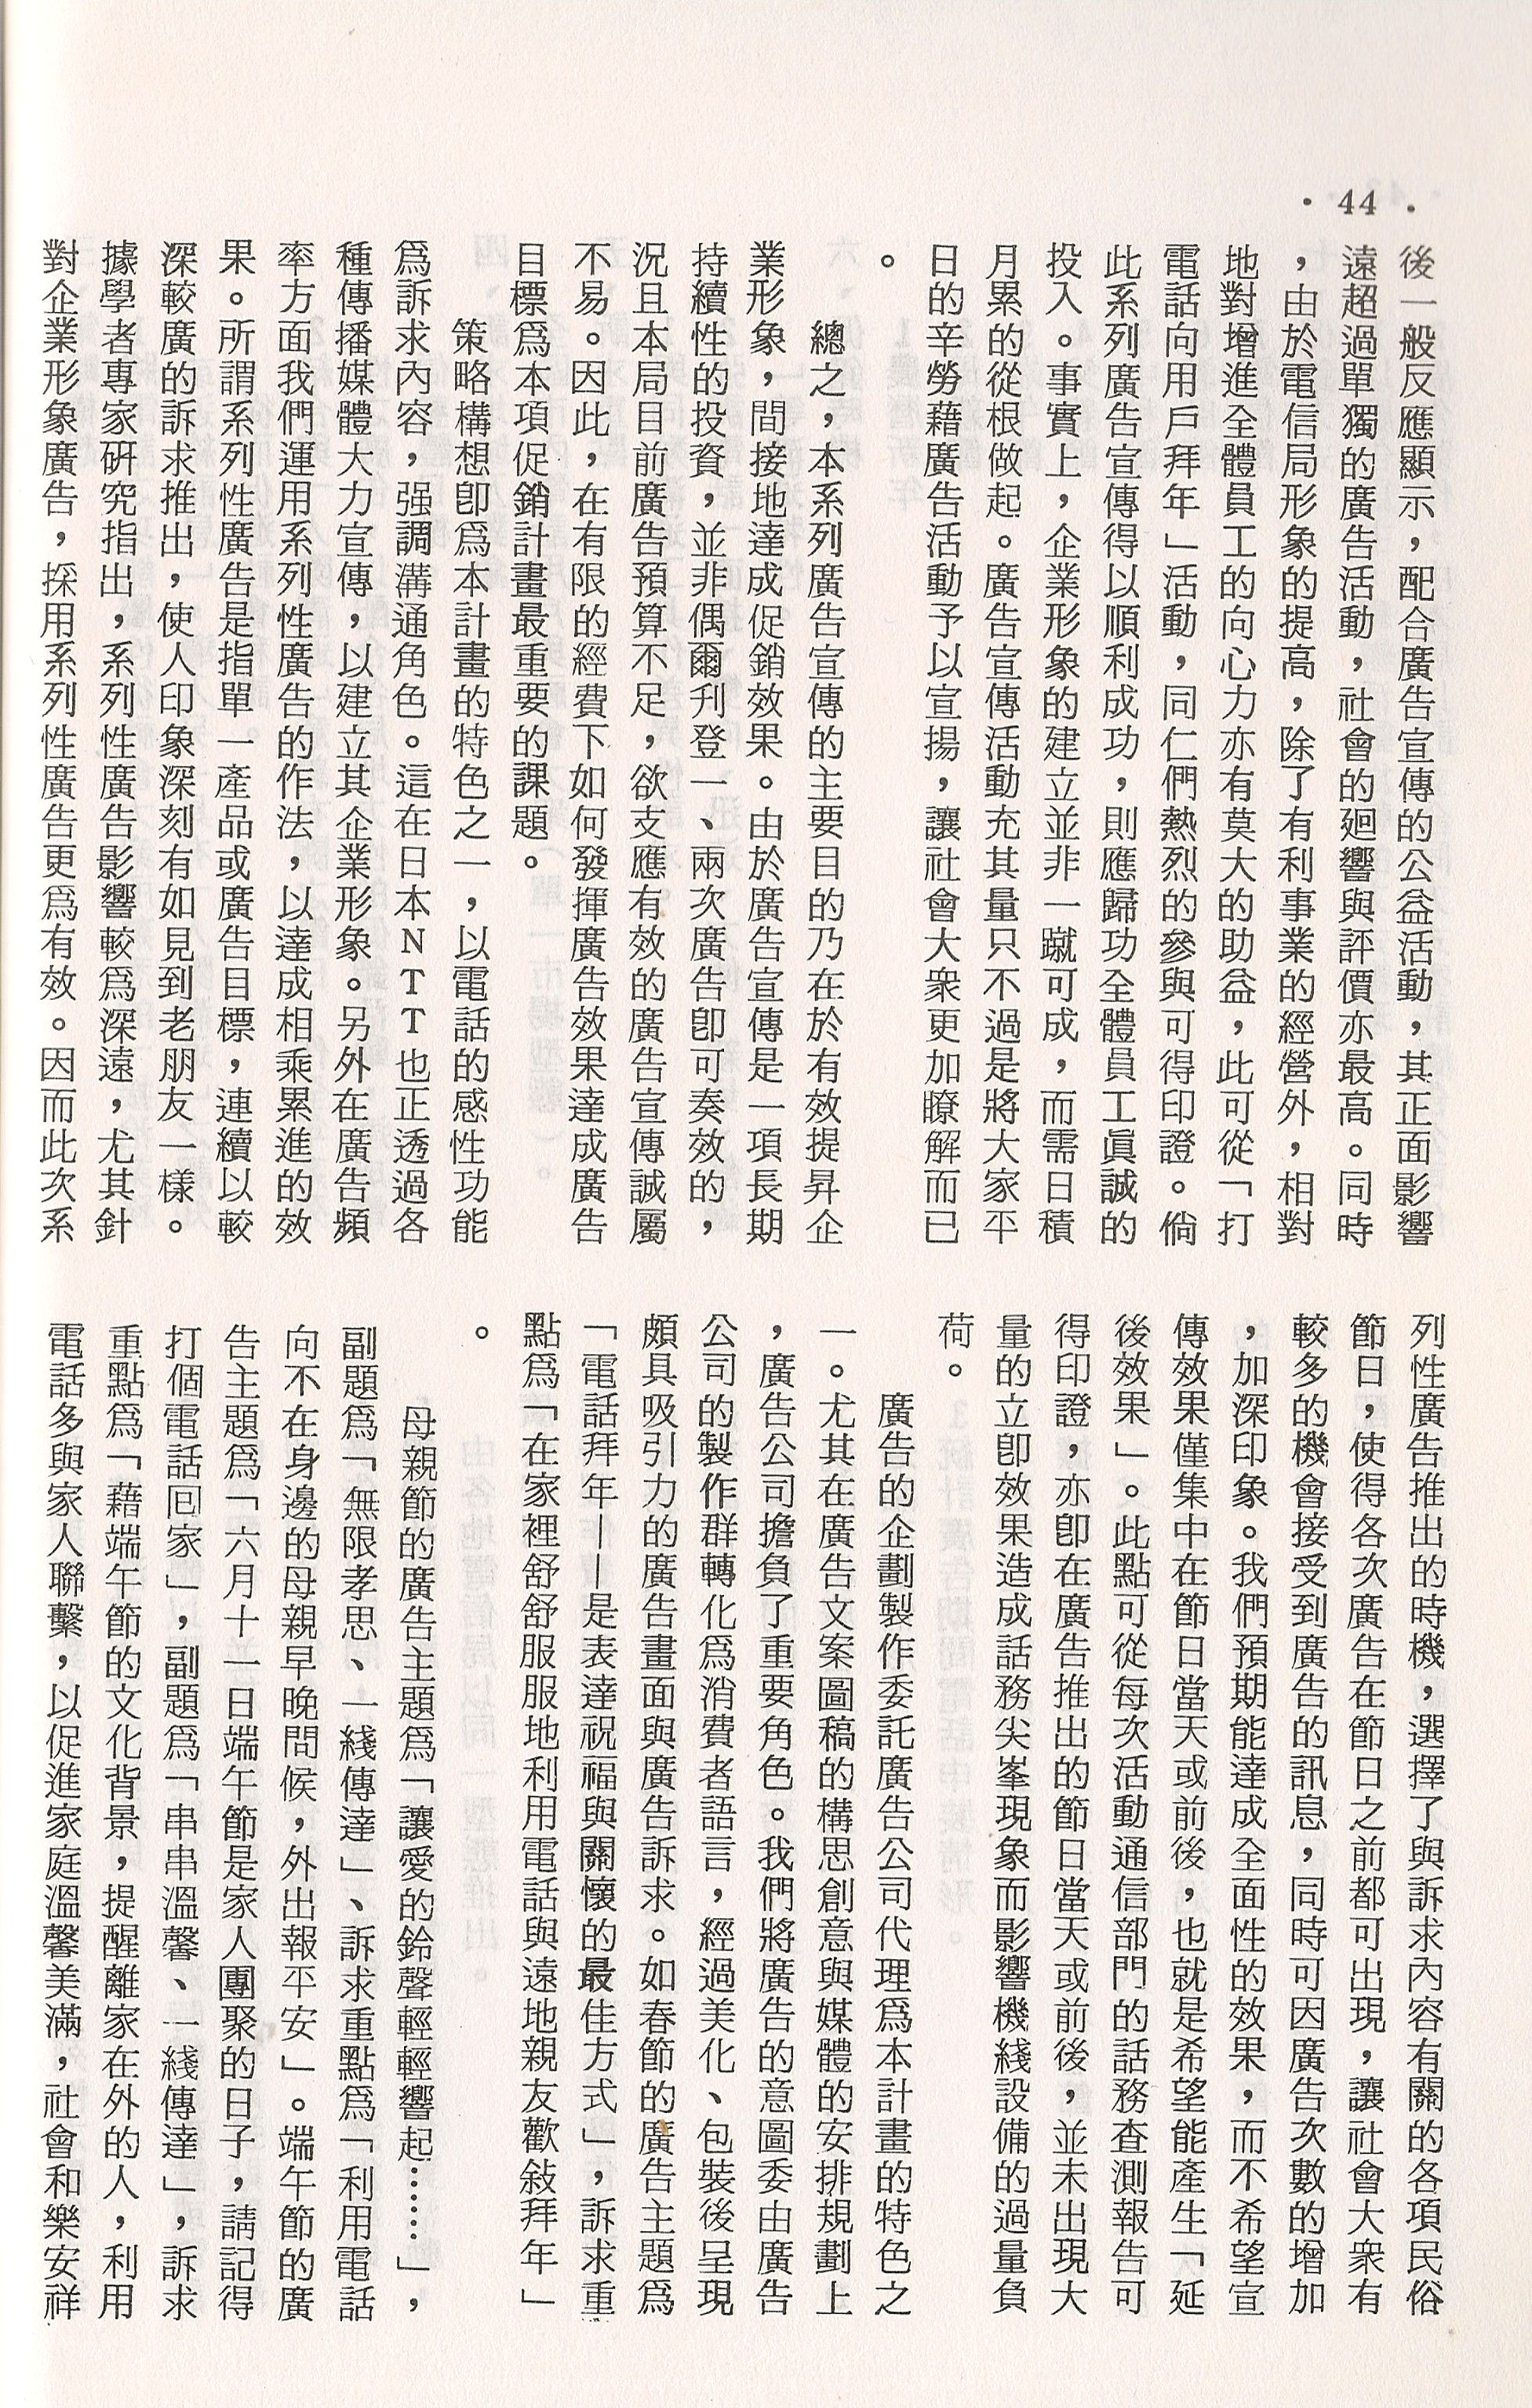 ·44·
後一般反應顯示，配合廣告宣傳的公益活動，其正面影響
遠超過單獨的廣告活動，社會的廻響與評價亦最高。同時
，由於電信局形象的提高，除了有利事業的經營外，相對
地對增進全體員工的向心力亦有莫大的助益，此可從「打
電話向用戶拜年」活動，同仁們熱烈的參與可得印證。倘
此系列廣告宣傳得以順利成功，則應歸功全體員工眞誠的
投入。事實上，企業形象的建立並非一蹴可成，而需日積
月累的從根做起。廣告宣傳活動充其量只不過是將大家平
日的辛勞藉廣告活動予以宣揚，讓社會大衆更加瞭解而已
。
總之，本系列廣告宣傳的主要目的乃在於有效提昇企
業形象，間接地達成促銷效果。由於廣告宣傳是一項長期
持續性的投資，並非偶爾刋登一、兩次廣告卽可奏效的，
況且本局目前廣告預算不足，欲支應有效的廣告宣傳誠屬
不易。因此，在有限的經費下如何發揮廣告效果達成廣告
目標爲本項促銷計畫最重要的課題。
策略構想卽爲本計畫的特色之一，以電話的感性功能
爲訴求內容，强調溝通角色。這在日本NTT也正透過各
種傳播媒體大力宣傳，以建立其企業形象。另外在廣告頻
率方面我們運用系列性廣告的作法，以達成相乘累進的效
果。所謂系列性廣告是指單一產品或廣告目標，連續以較
深較廣的訴求推出，使人印象深刻有如見到老朋友一樣。
據學者專家硏究指出，系列性廣告影響較爲深遠，尤其針
對企業形象廣告，採用系列性廣告更爲有效。因而此次系
列性廣告推出的時機，選擇了與訴求內容有關的各項民俗
節日，使得各次廣告在節日之前都可出現，讓社會大衆有
較多的機會接受到廣告的訊息，同時可因廣告次數的增加
，加深印象。我們預期能達成全面性的效果，而不希望宣
傳效果僅集中在節日當天或前後，也就是希望能產生「延
後效果」。此點可從每次活動通信部門的話務查測報告可
得印證，亦卽在廣告推出的節日當天或前後，並未出現大
量的立卽效果造成話務尖峯現象而影響機綫設備的過量負
荷。
廣告的企劃製作委託廣告公司代理爲本計畫的特色之
一。尤其在廣告文案圖稿的構思創意與媒體的安排規劃上
，廣告公司擔負了重要角色。我們將廣告的意圖委由廣告
公司的製作群轉化爲消費者語言，經過美化、包裝後呈現
頗具吸引力的廣告畫面與廣告訴求。如春節的廣告主題爲
「電話拜年——是表達祝福與關懷的最佳方式」，訴求重
點爲「在家裡舒舒服服地利用電話與遠地親友歡敍拜年」
。
母親節的廣告主題爲「讓愛的鈴聲輕輕響起……」，
副題爲「無限孝思、一綫傳達」、訴求重點爲「利用電話
向不在身邊的母親早晚問候，外出報平安」。端午節的廣
告主題爲「六月十一日端午節是家人團聚的日子，請記得
打個電話囘家」，副題爲「串串溫馨、一綫傳達」，訴求
重點爲「藉端午節的文化背景，提醒離家在外的人，利用
電話多與家人聯繫，以促進家庭溫馨美滿，社會和樂安祥